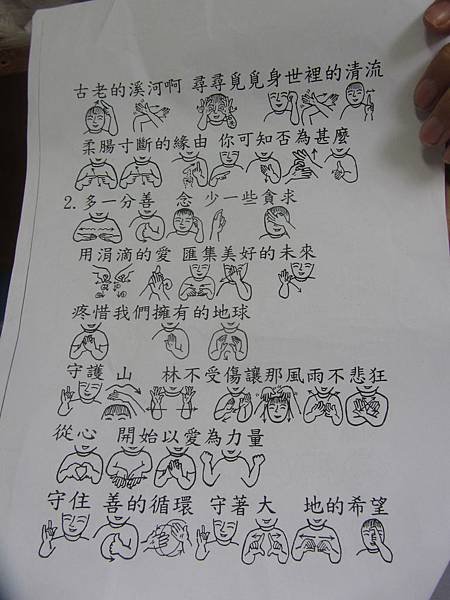 古老的溪河啊 尋尋覓覓身世裡的清流
柔腸寸斷的緣由 你可知否為甚麼
2.多一分善 念 少一些貪求
用涓滴的愛 匯集美好的未來
疼惜我們擁有的地球
守護 山 林不受傷讓那風雨不悲狂
從心 開始以愛為力量
守住 善的循環 守著大 地的希望